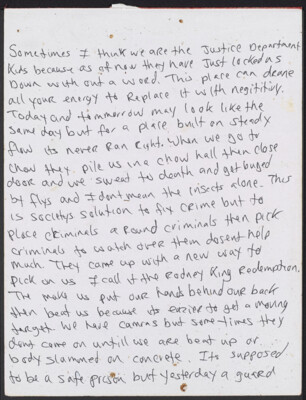 Sometimes I think we are the Justice Department
Kids because as of now they have Just locked us
Down with out a word. This place can drane
all your energy to Replace it with negititivy.
Today and tommorrow may look like the
Same day but for a place built on steady
flow its never Ran Right. When we go to
Chow they pile us in a chow hall then close
door and we sweat to death and get buged
by flys and I dont mean the insects alone. This
is societys solution to fix crime but to
place criminals around criminals then pick
criminals to watch over them dosent help
much. They came up with a new way to
pick on us I call it the Rodney King Redemption.
The make us put our hands behind our back
then beat us because its eazier to get a moving
target. We have camras but some times they
dont come on untill we are beat up or
body slammed on concrete. Its supposed
to be a safe prison but yesterday a guard